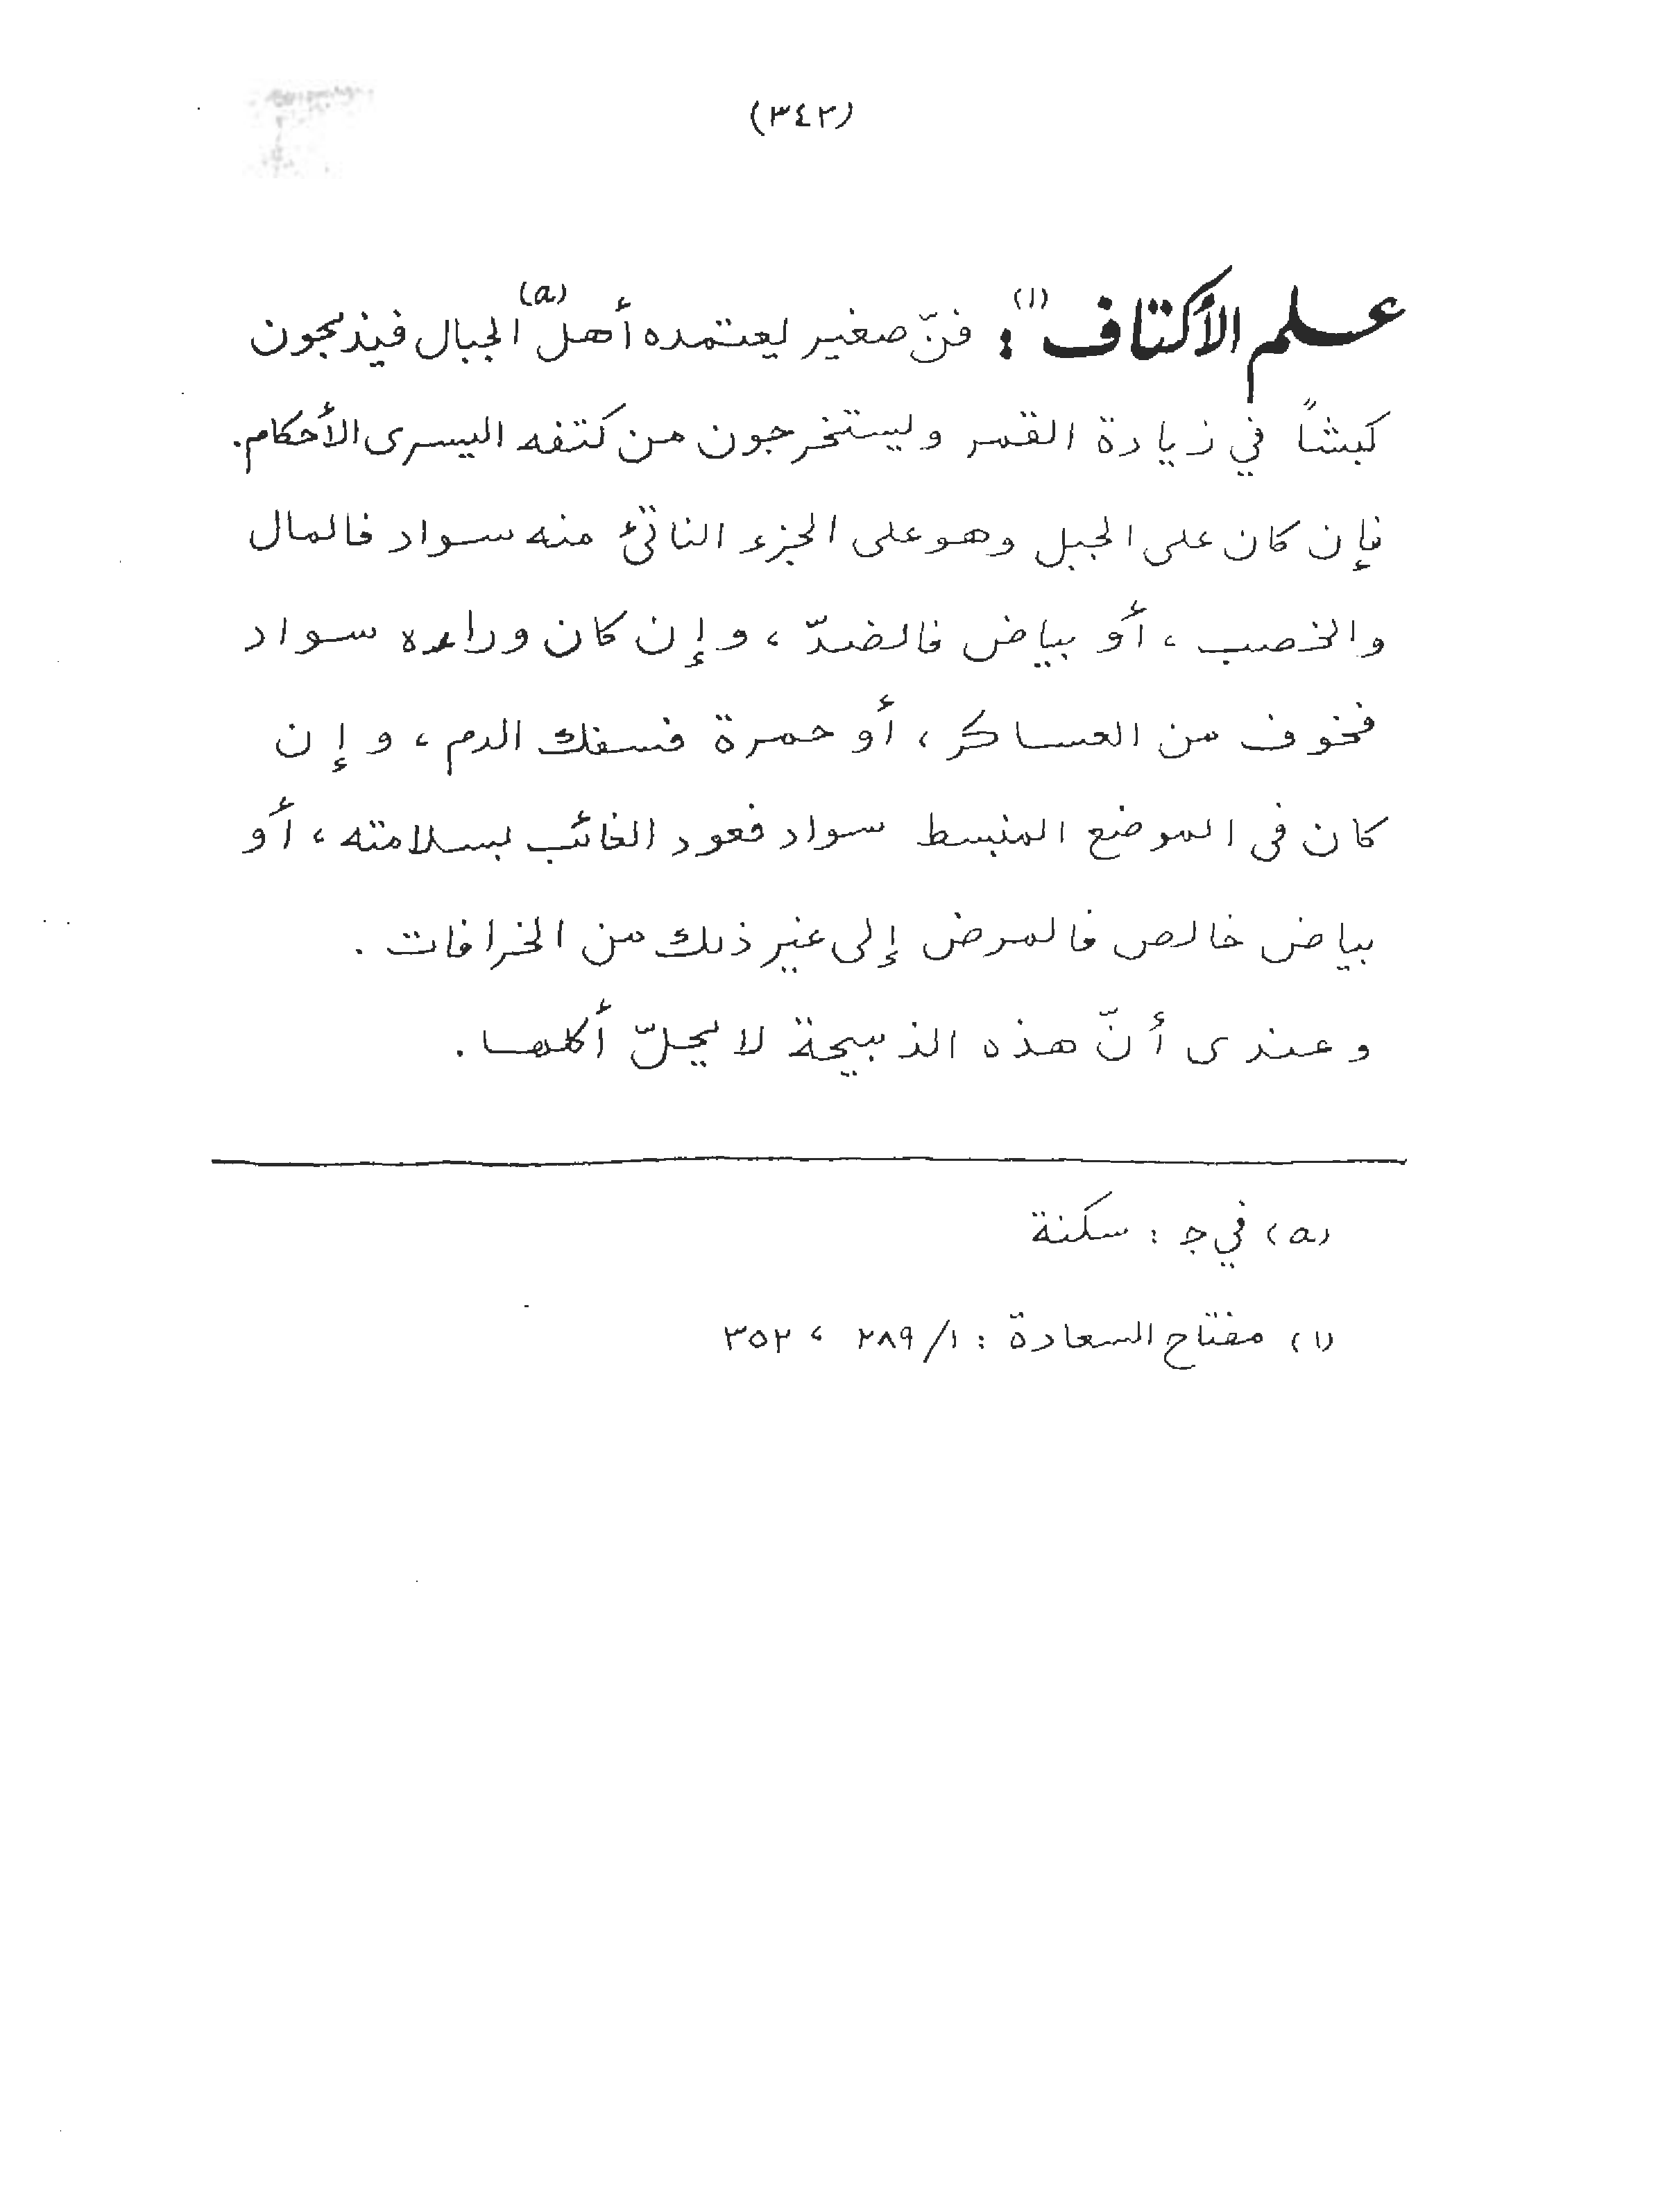 (٣٤٢)
علم الأكتاف(١): فنّ صغير يعتمده أهل(a) الجبال فيذبحون
كبشاً في زيادة القمر ويستخرجون من كتفه اليسرى الأحكام.
فإن كان على الجبل وهو على الجزء الناتئ منه سواد فالمال
والخصب، أو بياض فالضدّ، وإن كان وراءه سواد
فخوف من العساكر، أو حمرة فسفك الدم، وإن
كان فى الموضع المنبسط سواد فعود الغائب بسلامته، أو
بياض خالص فالمرض إلى غير ذلك من الخرافات.
وعندى أنّ هذه الذبيحة لا يحلّ أكلها.
(a) في ج: سكنة
(١) مفتاح السعادة: ١/ ٢٨٩، ٣٥٢